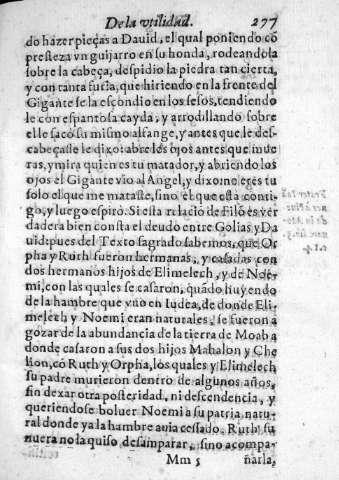 De la vtilidad. 277
do hazer pieças a Dauid, el qual poniendo cõ
presteza vn guijarro en su honda, rodeandola
sobre la cabeça, despidio la piedra tan cierta,
y con tanta furia, que hiriendo en la frente del
Gigante se la escondio en los sesos, tendiendo
le con espantosa cayda, y arrodillando sobre
el le sacò su mismo alfange, y antes que le des-
cabeçasse le dixo: abre los ojos antes que mue
ras, y mira quien es tu matador, y abriendo los
ojos el Gigante vio al Angel, y dixo no eres tu
solo el que me mataste, sino el que esta conti-
go, y luego espirò. Si esta relaciõ de Filõ es ver
dadera bien consta el deudo entre Golias y Da
uid: pues del Texto sagrado sabemos, que Or
pha y Ruth fueron hermanas, y casadas con
dos hermanos hijos de Elimelech, y de Noe-
mi, con las quales se casaron, quãdo huyendo
de la hambre que vuo en Iudea, de donde Eli-
melech y Noemi eran naturales, se fueron a
gozar de la abundancia de la tierra de Moab a
donde casaron a sus dos hijos Mahalon y Che
lion, cõ Ruth y Orpha, los quales y Elimelech
su padre murieron dentro de algunos años,
sin dexar otra posteridad, ni descendencia, y
queriendose boluer Noemi a su patria natu-
ral donde ya la hambre auia cessado. Ruth su
nuera no la quiso desamparar, sino acompa-
Mm 5 ñarla,